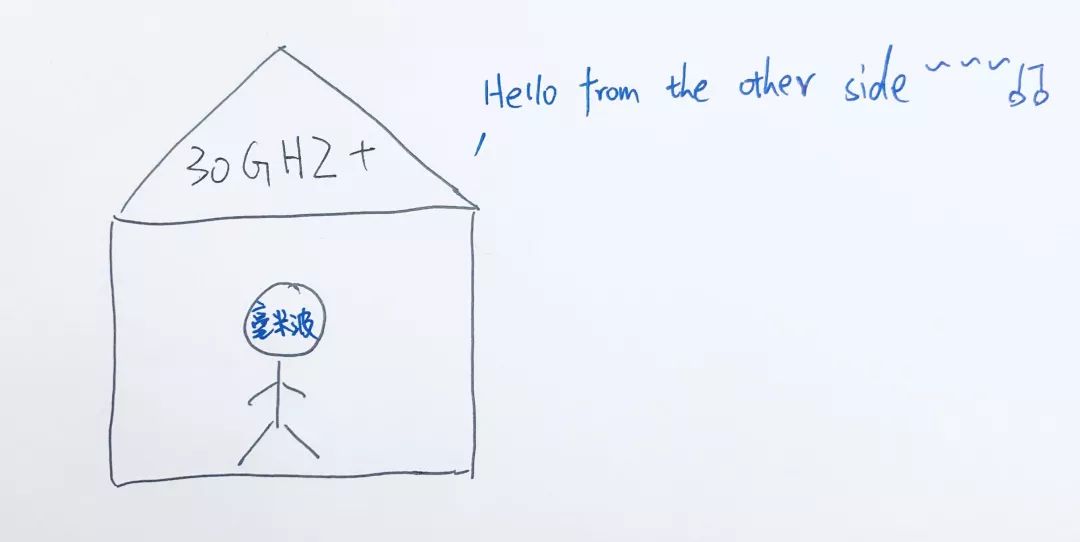 Hello from the other side ~~~♫
30GHZ+
毫米波